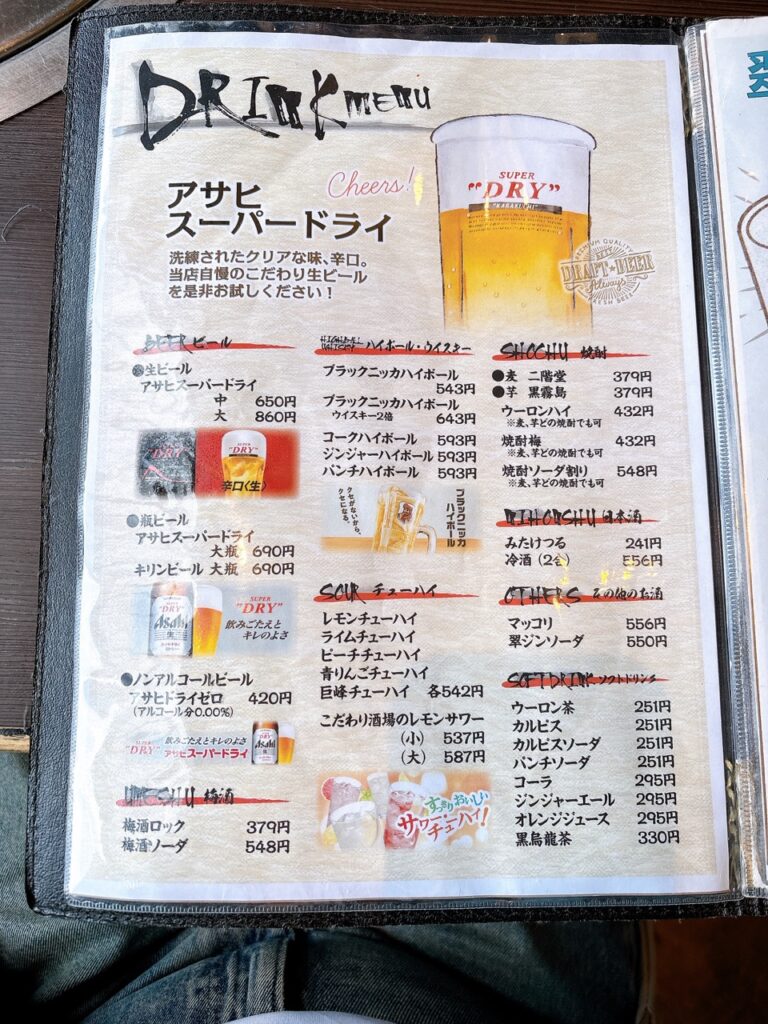 DRINK MENU
Cheers!
アサヒ
スーパードライ
洗練されたクリアな味、辛口。
当店自慢のこだわり生ビール
を是非お試しください！
SUPER
"DRY"
"KARAKUCHI"
PREMIUM QUALITY
DRAFT★BEER
Always
FRESH BEER
BEER ビール
●生ビール
アサヒスーパードライ
中 650円
大 860円
SUPER
"DRY"
辛口〈生〉
●瓶ビール
アサヒスーパードライ
大瓶 690円
キリンビール 大瓶 690円
"DRY"
Asahi
生
SUPER
"DRY"
飲みごたえと
キレのよさ
●ノンアルコールビール
アサヒドライゼロ 420円
(アルコール分0.00%)
SUPER
"DRY"
飲みごたえとキレのよさ
アサヒスーパードライ
Asahi
UMESHU 梅酒
梅酒ロック 379円
梅酒ソーダ 548円
HIGHBALL WHISKY ハイボール・ウイスキー
ブラックニッカハイボール
543円
ブラックニッカハイボール
ウイスキー2倍 643円
コークハイボール 593円
ジンジャーハイボール 593円
パンチハイボール 593円
クセがないから、
クセになる。
ブラックニッカ
ハイボール
SOUR チューハイ
レモンチューハイ
ライムチューハイ
ピーチチューハイ
青りんごチューハイ
巨峰チューハイ 各542円
こだわり酒場のレモンサワー
(小) 537円
(大) 587円
すっきりおいしい
サワー・
チューハイ!
SHOCHU 焼酎
●麦 二階堂 379円
●芋 黒霧島 379円
ウーロンハイ 432円
※麦、芋どの焼酎でも可
焼酎梅 432円
※麦、芋どの焼酎でも可
焼酎ソーダ割り 548円
※麦、芋どの焼酎でも可
NIHONSHU 日本酒
みたけつる 241円
冷酒(2合) 556円
OTHERS その他のお酒
マッコリ 556円
翠ジンソーダ 550円
SOFT DRINK ソフトドリンク
ウーロン茶 251円
カルピス 251円
カルピスソーダ 251円
パンチソーダ 251円
コーラ 295円
ジンジャーエール 295円
オレンジジュース 295円
黒烏龍茶 330円